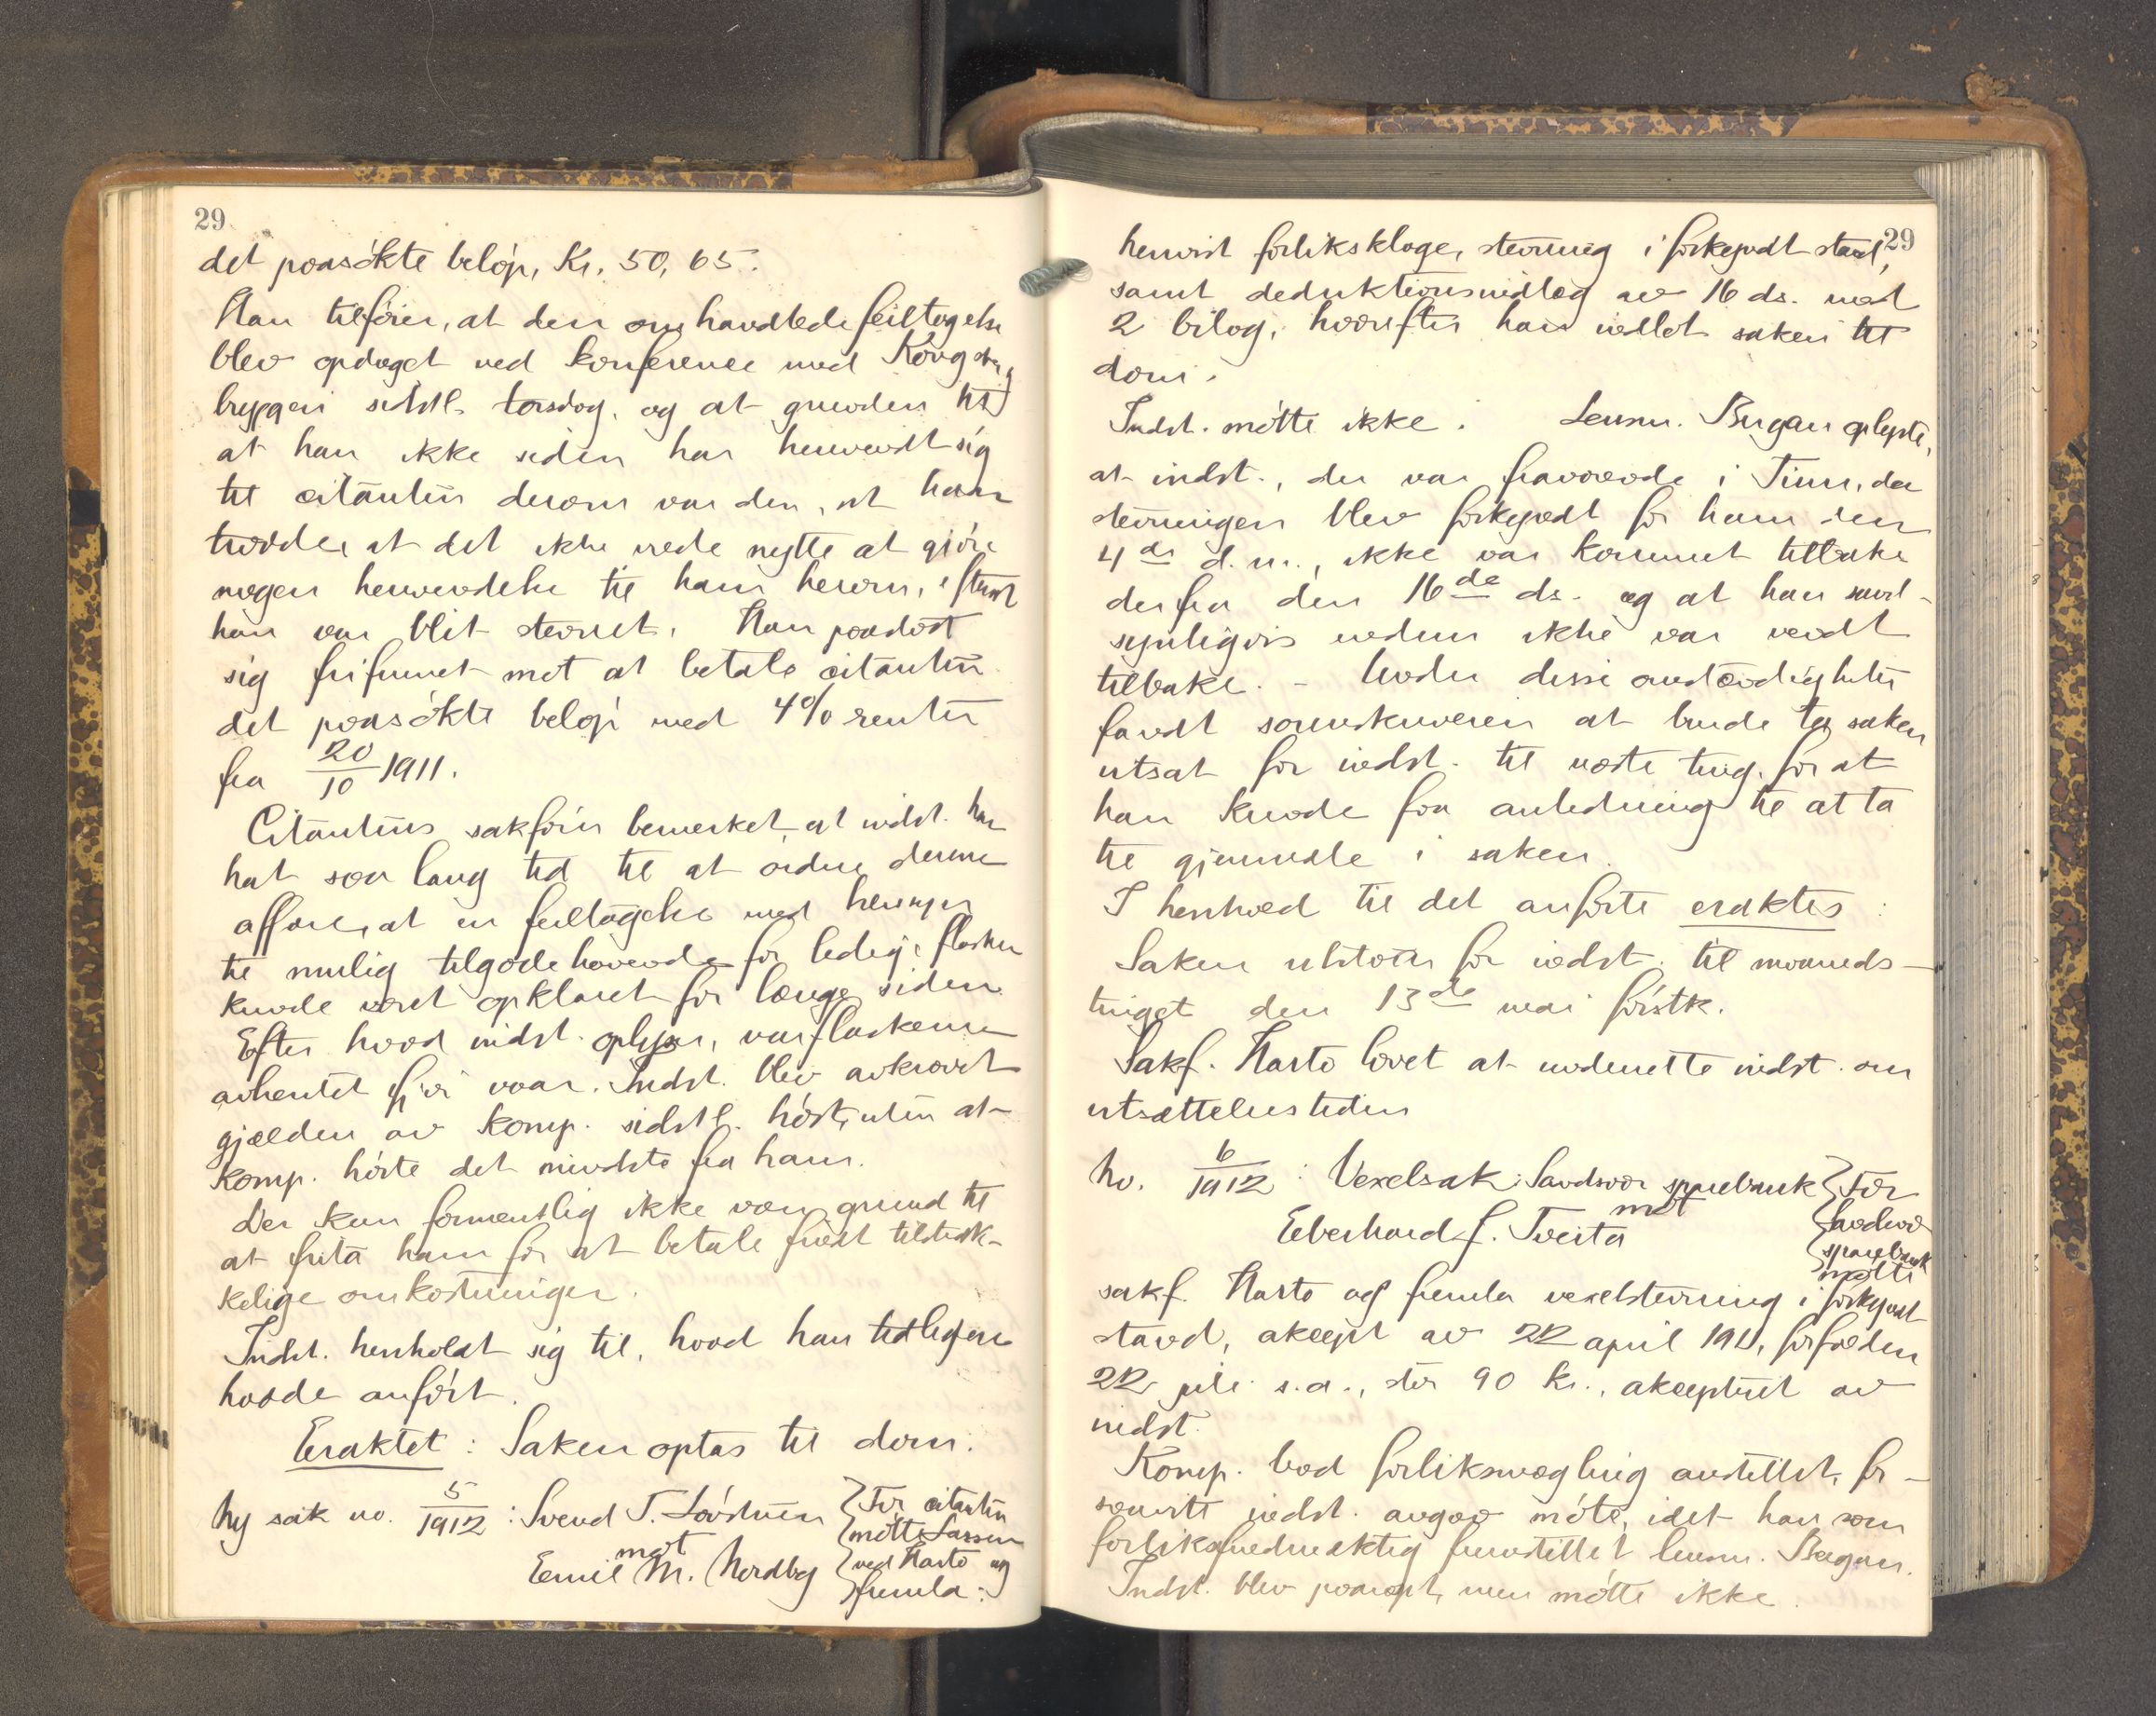 29
det paasøkte beløp, Kr. 50,65.
Han tilføier, at den omhandlede feiltagelse
blev opdaget ved konference med Kongsberg
bryggeri sidstl. torsdag, og at grunden til
at han ikke siden har henvendt sig
til citanten derom var den, at han
trodde, at det ikke vilde nytte at gjøre
nogen henvendelse til ham herom, eftersom
han var blit stevnet. Han paastod
sig frifunnet mot at betale citanten
det paasøkte beløp med 4% renter
fra 20/10 1911.
Citantens sakfører bemerket, at indst. har
hat saa lang tid til at ordne denne
affære, at en feiltagelse med hensyn
til mulig tilgodehavende for ledige flasker
kunde været opklaret for længe siden.
Efter hvad indst. oplyser, var flaskerne
avhentet ifjor vaar. Indst. blev avkrævet
gjælden av komp. sidstl. høst, uten at
komp. hørte det mindste fra ham.
Der kan formentlig ikke være grund til
at frita ham for at betale fuldt tilstræk-
kelige omkostninger.
Indst. henholdt sig til, hvad han tidligere
hadde anført.
Eraktet: Saken optas til dom.
Ny sak no. 5/1912: Svend T. Løvstuen } For citanten
mot } møtte Lassen
Emil M. Nordby } ved Harto og
} fremla:
29
henvist forliksklage, stevning i forkyndt stand,
samt deduktionsindlæg av 16 ds. med
2 bilag, hvorefter han indlot saken til
dom.
Indst. møtte ikke. Lensm. Bugan oplyste,
at indst., der var fraværende i Tinn, da
stevningen blev forkyndt for ham den
4de d.m., ikke var kommet tilbake
derfra den 16de ds. og at han sand-
synligvis endnu ikke var vendt
tilbake. – Under disse omstændigheter
fandt sorenskriveren at burde ta saken
utsat for indst. til næste ting, for at
han kunde faa anledning til at ta
til gjenmæle i saken.
I henhold til det anførte eraktes:
Saken utstaar for indst. til maaneds-
tinget den 13de mai førstk.
Sakf. Harto lovet at underrette indst. om
utsættelsestiden
No. 6/1912: Vexelsak: Sandsvær sparebank } For
mot } Sandsvær
Eberhard J. Tveita } sparebank
møtte
sakf. Harto og fremla vexelstevning i forkyndt
stand, aksept av 22 april 1911, forfalden
22 juli s.a., stor 90 kr., akseptert av
indst.
Komp. bad forliksmægling anstillet, for-
saavitt indst. avgav møte, idet han som
forliksfuldmektig fremstillet lensm. Bugan.
Indst. blev paaropt, men møtte ikke.